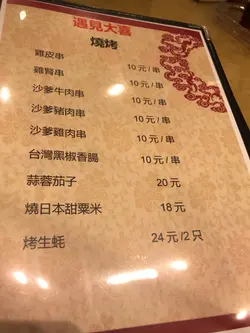 遇見大喜
燒烤
雞皮串
雞腎串 10 元/串
沙爹牛肉串 10 元/串
沙爹豬肉串 10 元/串
沙爹雞肉串 10 元/串
台灣黑椒香腸 10 元/串
蒜蓉茄子 20 元
燒日本甜粟米 18 元
烤生蚝 24 元/2 只